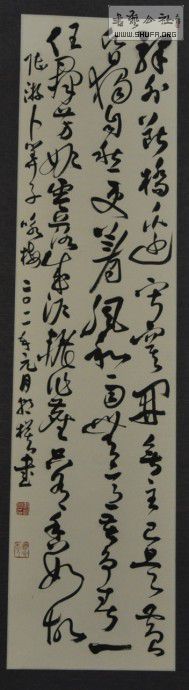 書藝公社
WWW.SHUFA.ORG
驛外斷橋邊寂寞開無主已是黄
昏獨自愁更着風和雨無意苦争春一
任群芳妒零落成泥碾作塵只有香如故
陸游卜算子咏梅二〇一一年元月書